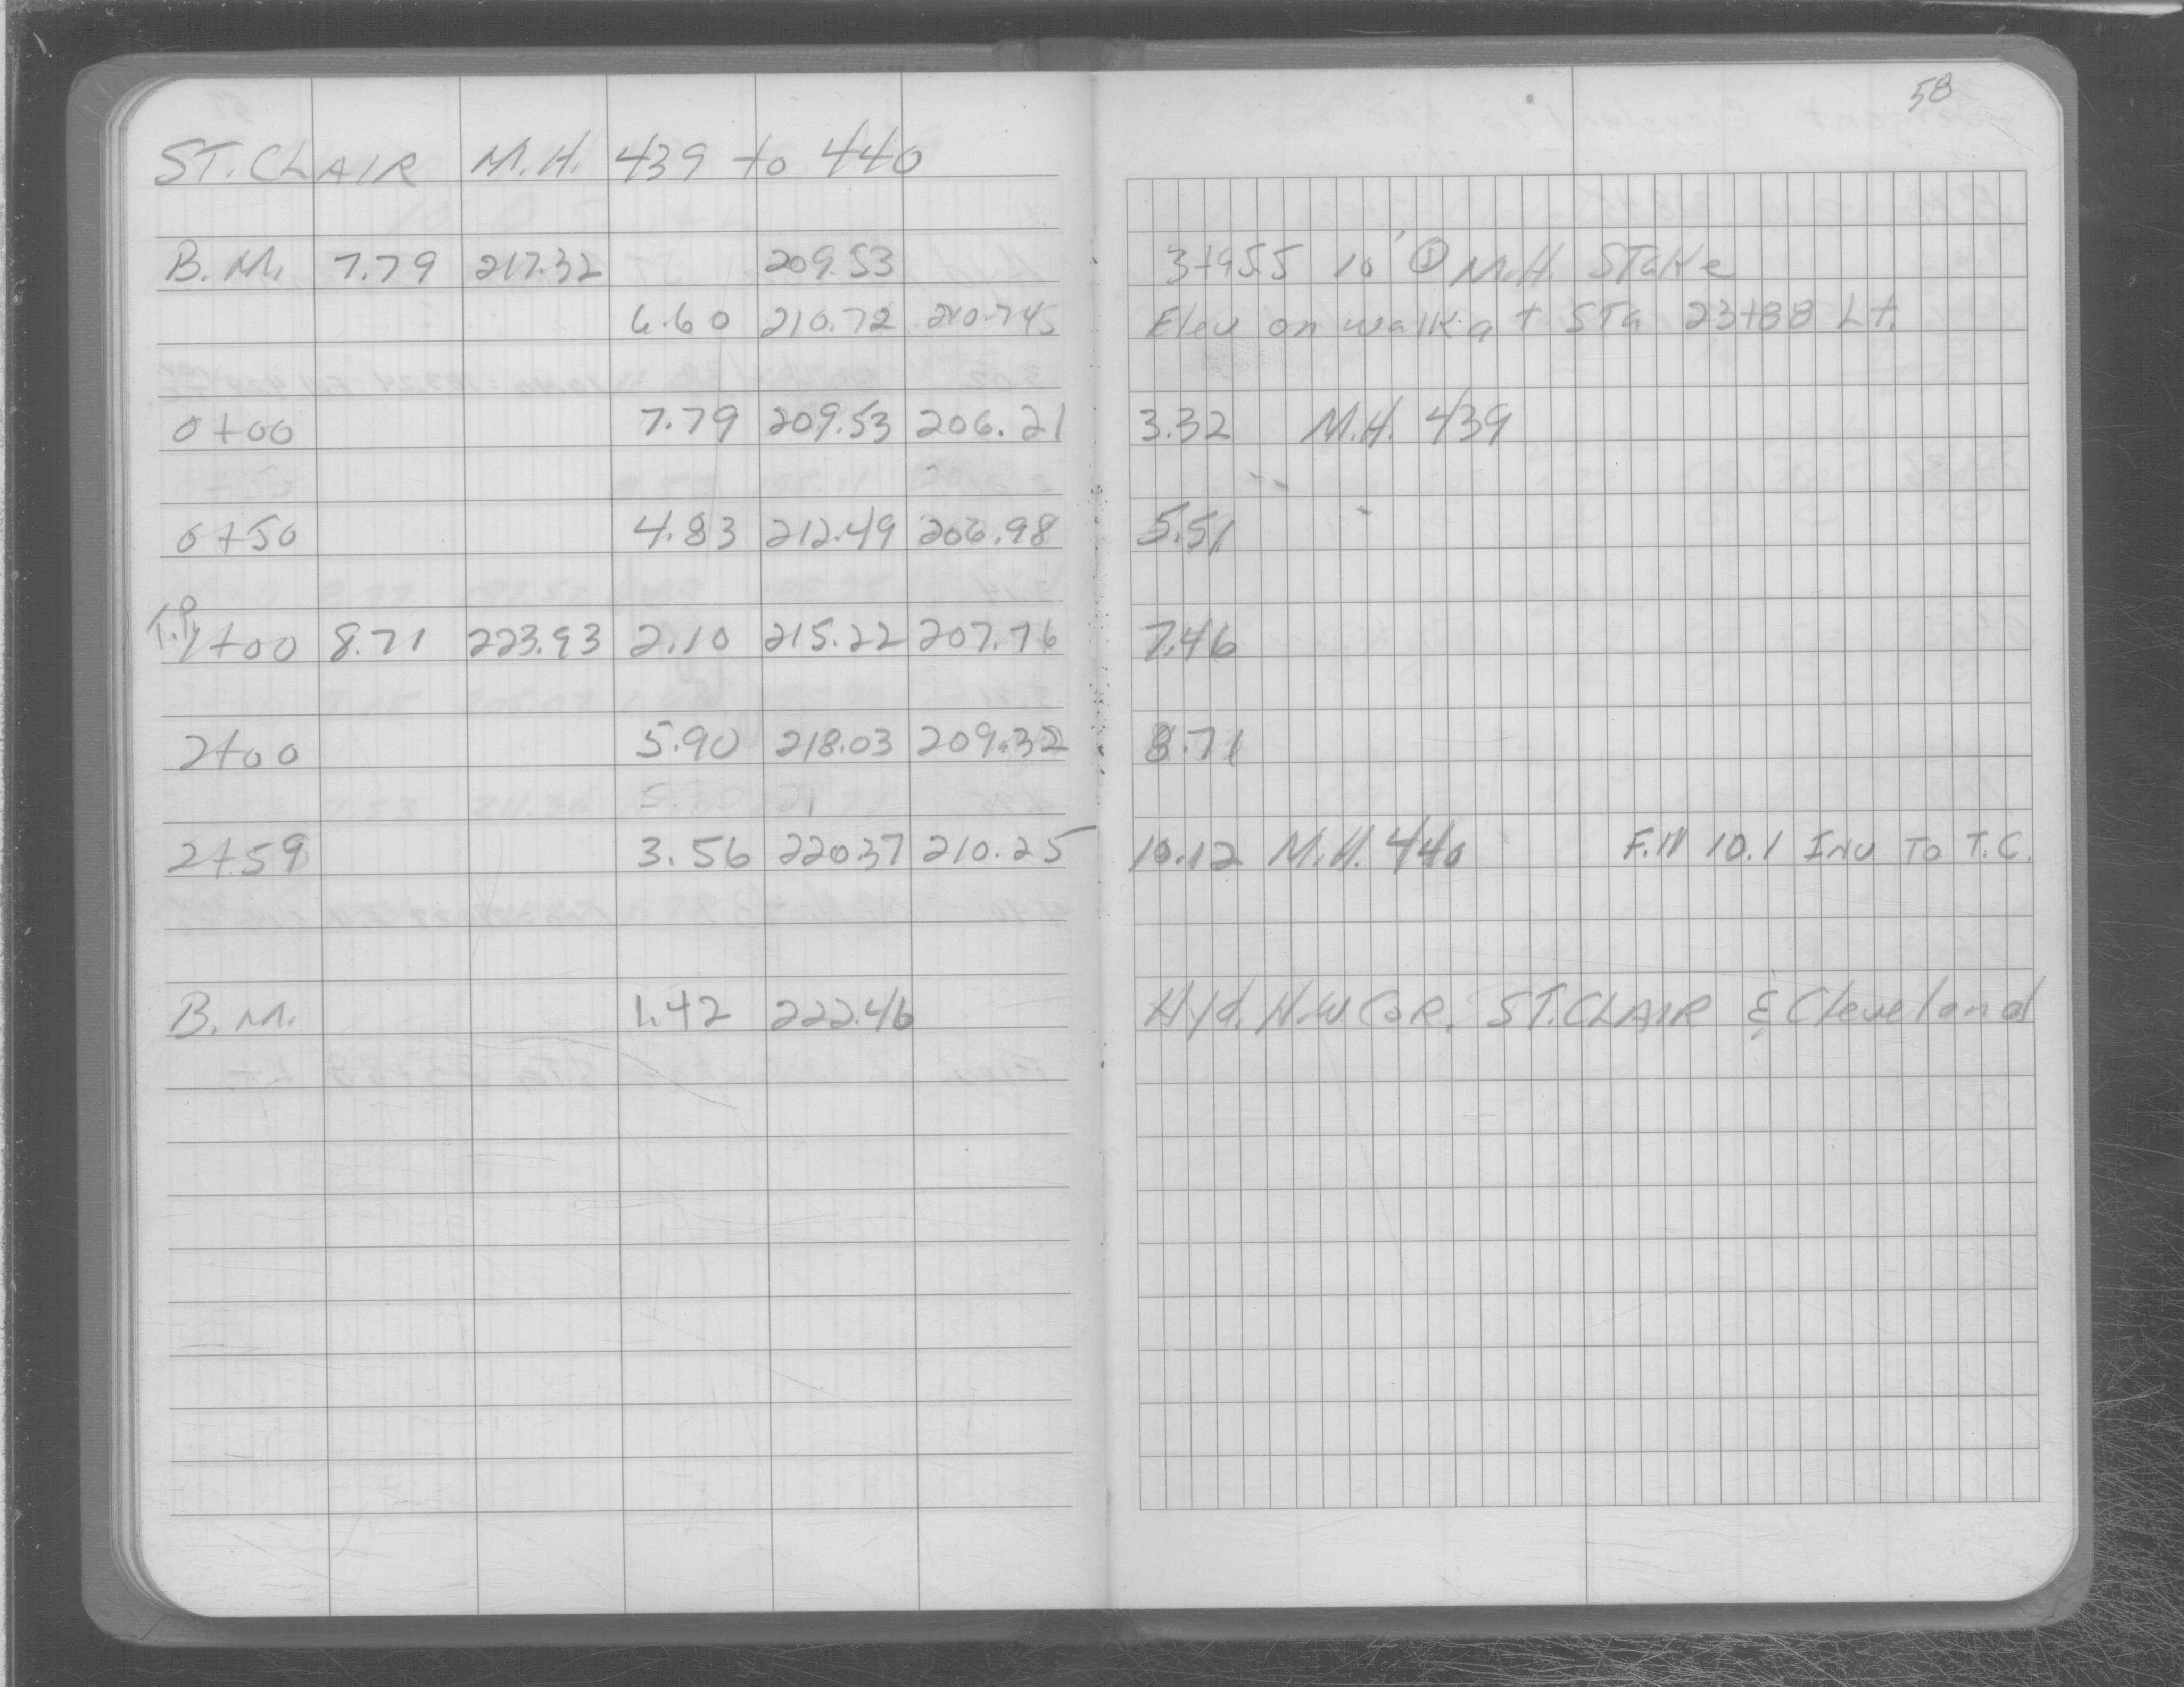 58
ST. CLAIR M.H. 439 to 440
B.M. 7.79 217.32 209.53 3+95.5 10' M.H. STake
6.60 210.72 210.745 Elev on walk at STa 23+88 Lt.
0+00 7.79 209.53 206.21 3.32 M.H. 439
0+50 4.83 212.49 206.98 5.51
T.P. 1+00 8.71 223.93 2.10 215.22 207.76 7.46
2+00 5.90 218.03 209.32 8.71
2+59 3.56 220.37 210.25 10.12 M.H. 440 Fill 10.1 Inv To T.C.
B.M. 1.42 222.46 Hyd. N.W COR. ST. CLAIR & Cleveland